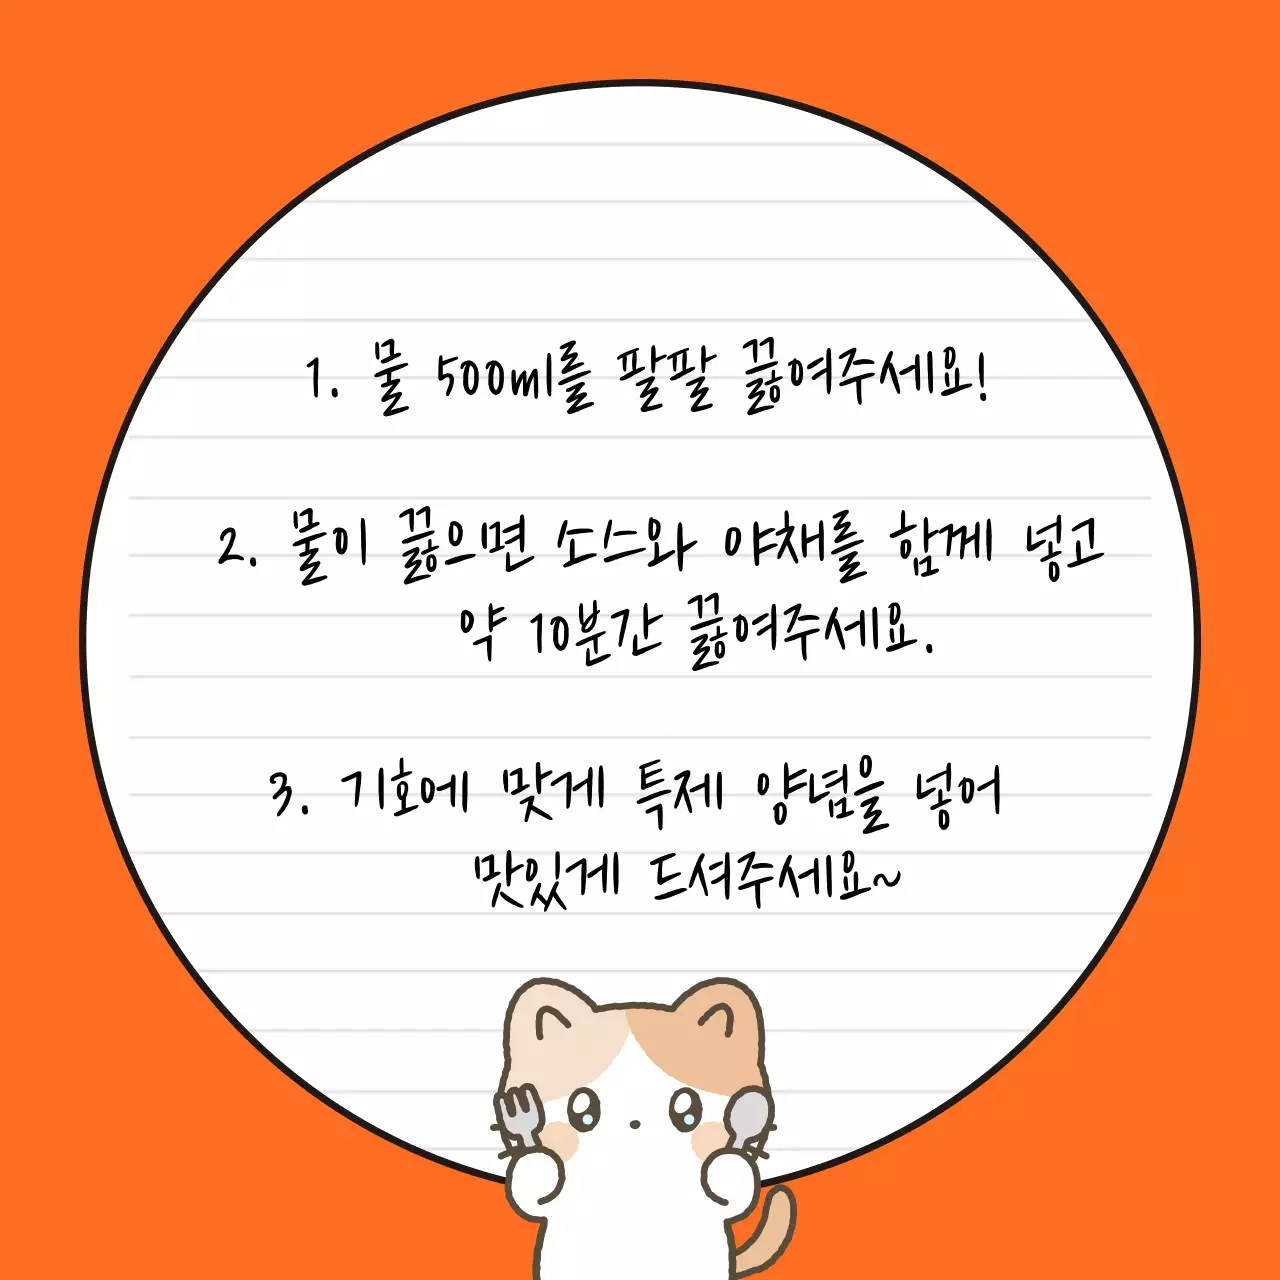 1. 물 500ml를 팔팔 끓여주세요!
2. 물이 끓으면 소스와 야채를 함께 넣고
약 10분간 끓여주세요.
3. 기호에 맞게 특제 양념을 넣어
맛있게 드셔주세요~